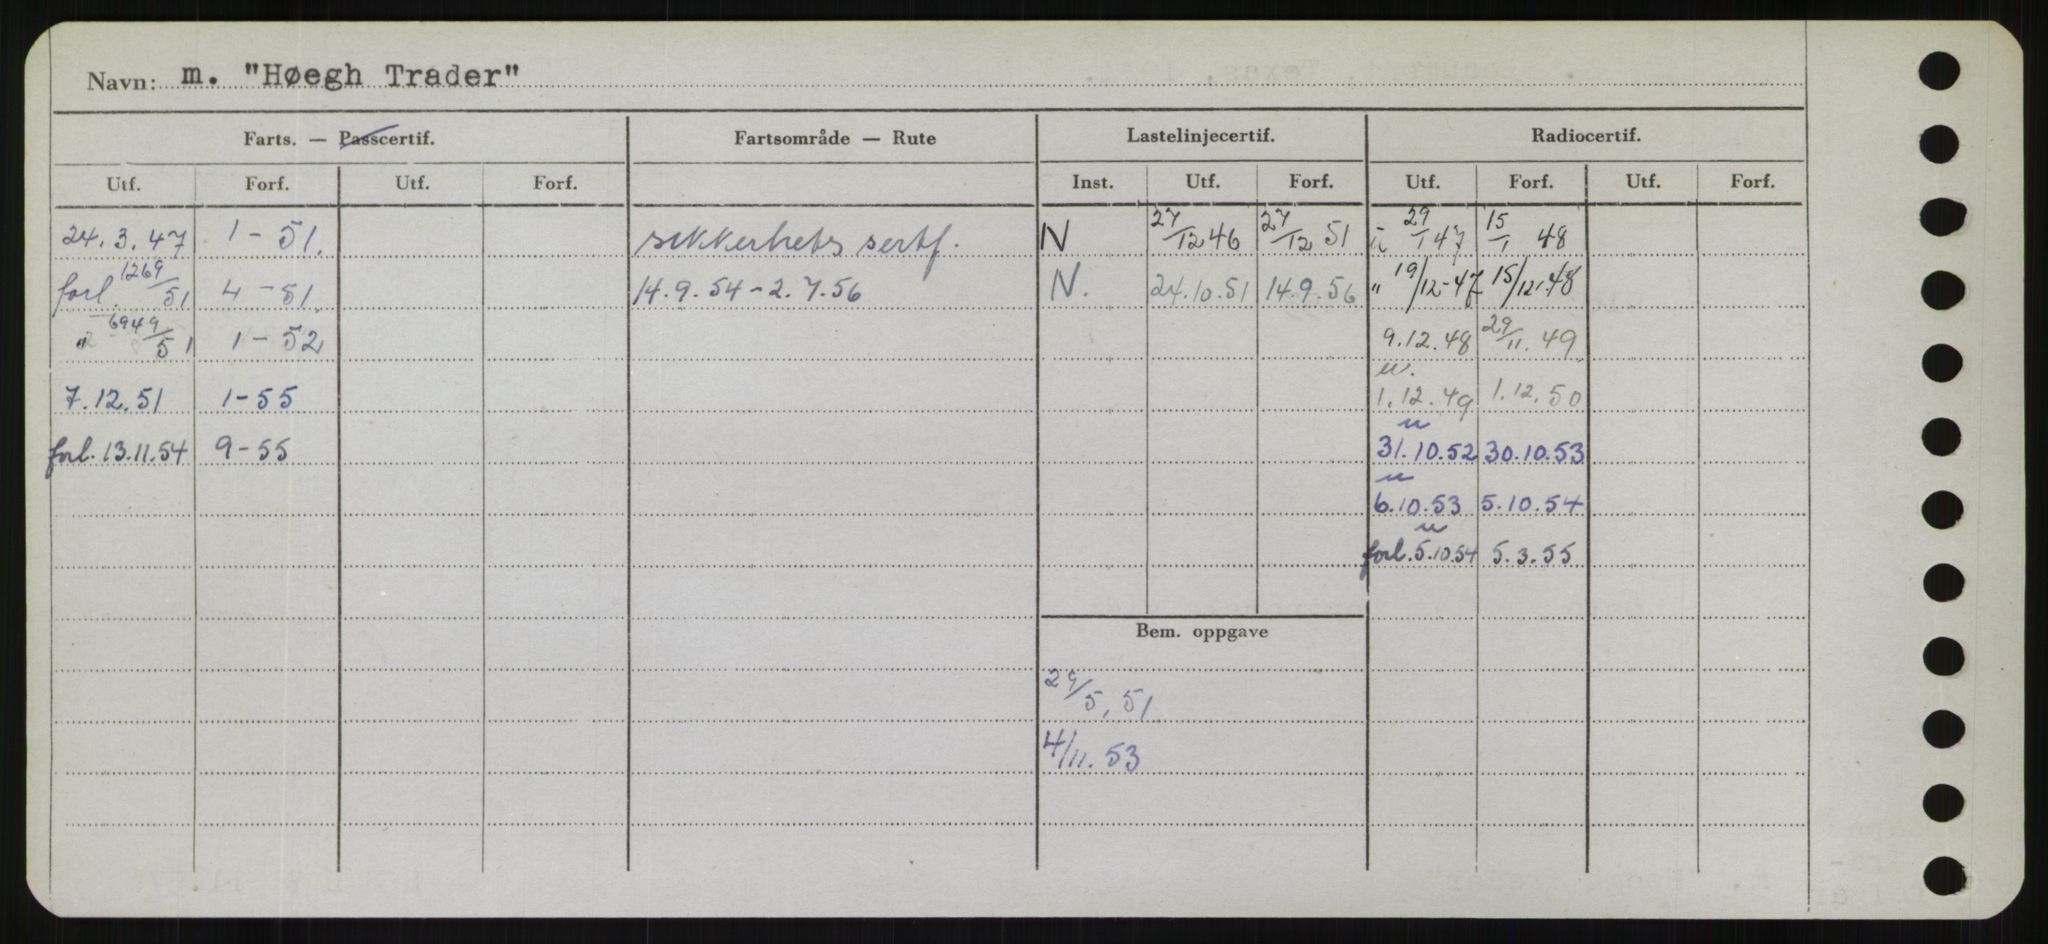 Navn: m. "Høegh Trader"
Farts. — Passcertif. Fartsområde — Rute Lastelinjecertif. Radiocertif.
Utf. Forf. Utf. Forf. Inst. Utf. Forf. Utf. Forf. Utf. Forf.
24.3.47 1-51. sikkerhets sertf. N 27/12 46 27/12 51 29/1 47 15/1 48
forl. 1269/51 4-51. 14.9.54-2.7.56 N. 24.10.51 14.9.56 " 19/12-47 15/12.48
" 6949/51 1-52 9.12.48 29/11.49
u.
7.12.51 1-55 1.12.49 1.12.50
u
forl. 13.11.54 9-55 31.10.52 30.10.53
u
6.10.53 5.10.54
u
forl. 5.10.54 5.3.55
Bem. oppgave
29/5, 51
4/11. 53